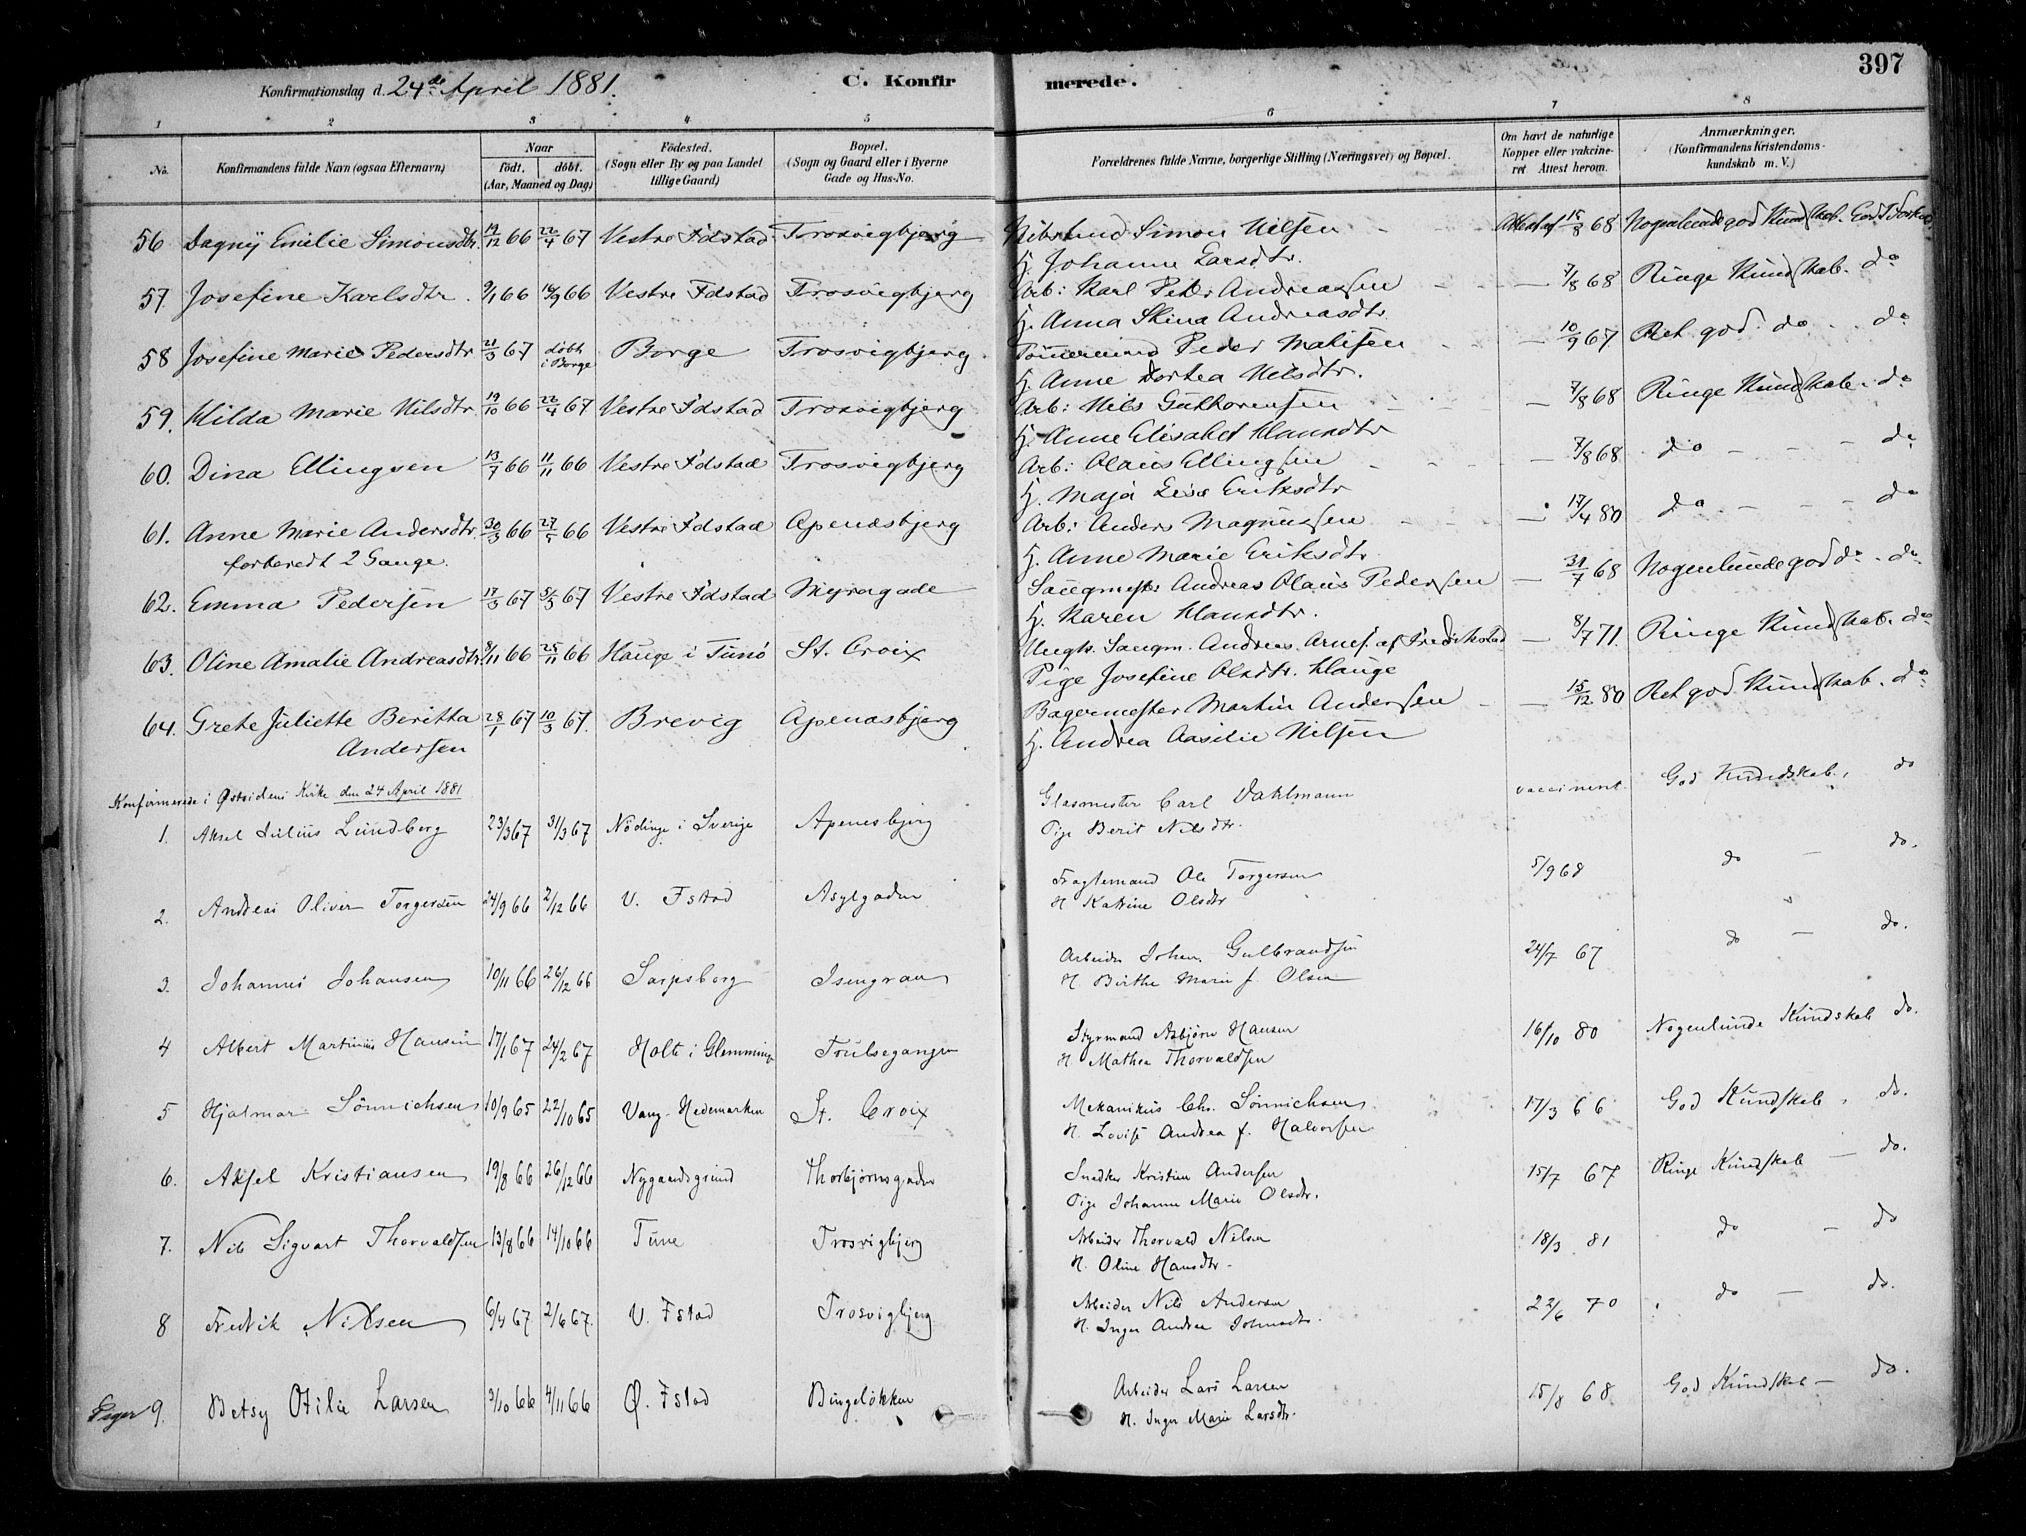 397
Konfirmationsdag d. 24de April 1881.
C. Konfirmerede.
1 2 3 4 5 6 7 8
No. Konfirmandens fulde Navn (ogsaa Efternavn) Naar født. døbt. (Aar, Maaned og Dag) Fødested. (Sogn eller By og paa Landet tillige Gaard) Bopæl. (Sogn og Gaard eller i Byerne Gade og Hus-No. Forældrenes fulde Navne, borgerlige Stilling (Næringsvei) og Bopæl. Om havt de naturlige Kopper eller vakcineret Attest herom. Anmærkninger. (Konfirmandens Kristendomskundskab m. V.)
56 Dagny Emilie Simonsdtr. 19/12 66 22/4 67 Vestre Fdstad Trosvigbjerg Simon Nilsen Attest af 15/8 68 Nogenlunde god Kundskab. God
H. Johanne Larsdtr.
57 Josefine Karlsdtr. 9/1 66 16/9 66 Vestre Fdstad Trosvigbjerg Arb: Karl Peter Andreassen — 7/8 68 Ringe Kundskab. do
H. Anna Stina Andreasdtr.
58 Josefine Marie Pedersdtr 21/3 67 døbt i Borge Borge Trosvigbjerg Tømmermand Peder Matisen — 10/9 67 Ret god do do
H. Anne Dortea Nilsdtr.
59. Hilda Marie Nilsdtr. 19/10 66 22/4 67 Vestre Fdstad Trosvigbjerg Arb: Nils Guthormsen — 7/8 68 Ringe Kundskab. do
H. Anne Elisabet Hansdtr
60. Dina Ellingsen 13/7 66 11/11 66 Vestre Fdstad Trosvigbjerg Arb: Olaus Ellingsen — 7/8 68 do — do
H. Maja Lisa Eriksdtr
61. Anne Marie Andersdtr. 30/3 66 27/5 66 Vestre Fdstad Apenæsbjerg Arb: Anders Magnussen — 17/4 80 do — do
forberedt 2 Gange. H. Anne Marie Eriksdtr.
62. Emma Pedersen 17/3 67 5/5 67 Vestre Fdstad Myragade Saugmester Andreas Olaus Pedersen — 31/7 68 Nogenlunde god do. do
H. Karen Hansdtr.
63. Oline Amalie Andreasdtr. 8/11 66 25/11 66 Hauge i Tunø St. Croix Ungk. Saugm. Andreas Arnes. af Fredrikstad — 8/7 71. Ringe Kundskab. do
Pige Josefine Olsdtr. Hauge
64. Grete Juliette Beritta Andersen 28/1 67 10/3 67. Brevig Apenæsbjerg Bagermester Martin Andersen — 15/12 80 Ret god Kundskab. do
H. Andrea Aasilie Nilsen
Konfirmerede i Østsidens Kirke den 24 April 1881
1. Aksel Julius Lundberg 23/3 67 31/3 67 Nödinge i Sverige Apenesbjerg Glasmester Carl Dahlmann vaccineret God Kundskab, do
Pige Berit Nilsdtr.
2. Andreas Oliver Torgersen 24/9 66 2/12 66 V. Fstad Asylgaden Fragtemand Ole Torgersen 5/9 68 do — do.
H. Katrine Olsdtr
3. Johannes Johansen 10/11 66 26/12 66 Sarpsborg Isengran Arbeider Johan Gulbrandsen 24/7 67 do — do.
H. Birthe Marie f. Olsen
4 Albert Martinius Hansen 17/1 67 24/2 67 Holte i Glemminge Trulsegangen Styrmand Asbjørn Hansen 16/10 80 Nogenlunde Kundskab do.
H. Mathea Thorvaldsen
5 Hjalmar Sönnichsen 10/9 65 22/10 65 Vang Hedemarken St. Croix Mekanikus Chr. Sønnichsen 17/3 66 God Kundskab, do.
H. Lovise Andrea f. Halvorsen
6. Aksel Kristiansen 19/8 66 26/12 66 Nygaardsgrund Thorbjørnsgaden Snedker Kristian Andersen 15/7 67 Ringe Kundskab — do.
Pige Johanne Marie Olsdtr.
7. Nils Sigvart Thorvaldsen 13/8 66 14/10 66 Tune Trosvigbjerg Arbeider Thorvald Nilsen 18/3 81 do — do
H. Oline Hansdtr.
8 Fredrik Nilsen 6/4 67 2/6 67. V. Fstad Trosvigbjerg Arbeider Nils Andersen 22/6 70 do — do.
H. Inger Andrea Johnsdtr.
Piger 9. Betsy Otilie Larsen 3/10 66 4/11 66 Ø. Fstad Bingeløkken Arbeider Lars Larsen 15/8 68 God Kundskab — do.
H. Inger Marie Larsdtr.